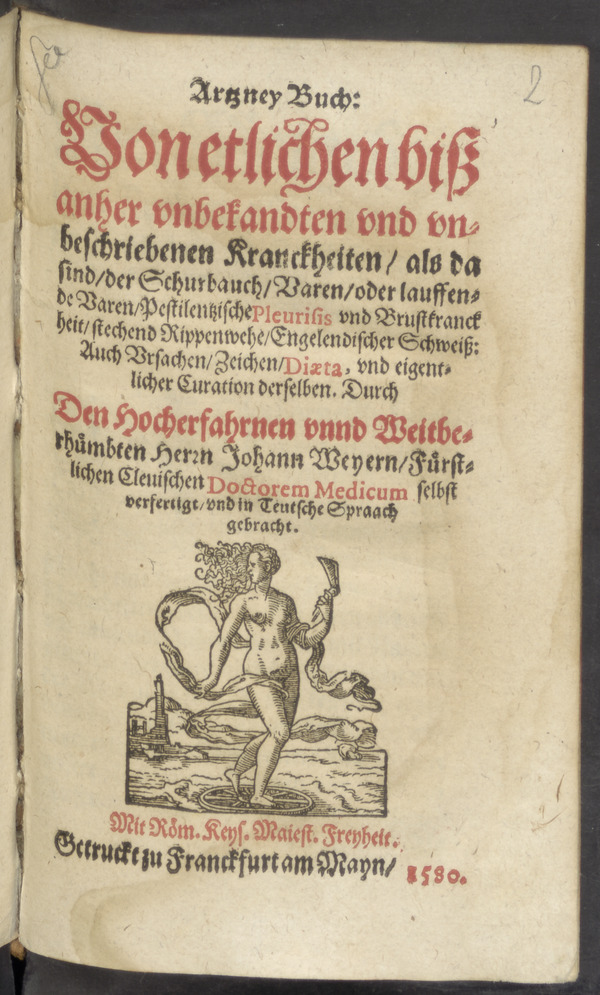 2
Artzney Buch:
Von etlichen biß
anher vnbekandten vnd vn-
beschriebenen Kranckheiten / als da
sind / der Schurbauch / Varen / oder lauffen-
de Varen / Pestilentzische Pleurisis vnd Brustkranck
heit / stechend Rippenwehe / Engelendischer Schweiß:
Auch Vrsachen / Zeichen / Diæta, vnd eigent-
licher Curation derselben. Durch
Den Hocherfahrnen vnnd Weitbe-
rhuͤmbten Herrn Johann Weyern / Fuͤrst-
lichen Cleuischen Doctorem Medicum selbst
verfertigt / vnd in Teutsche Spraach
gebracht.
Mit Roͤm. Keys. Maiest. Freyheit.
Getruckt zu Franckfurt am Mayn / 1580.